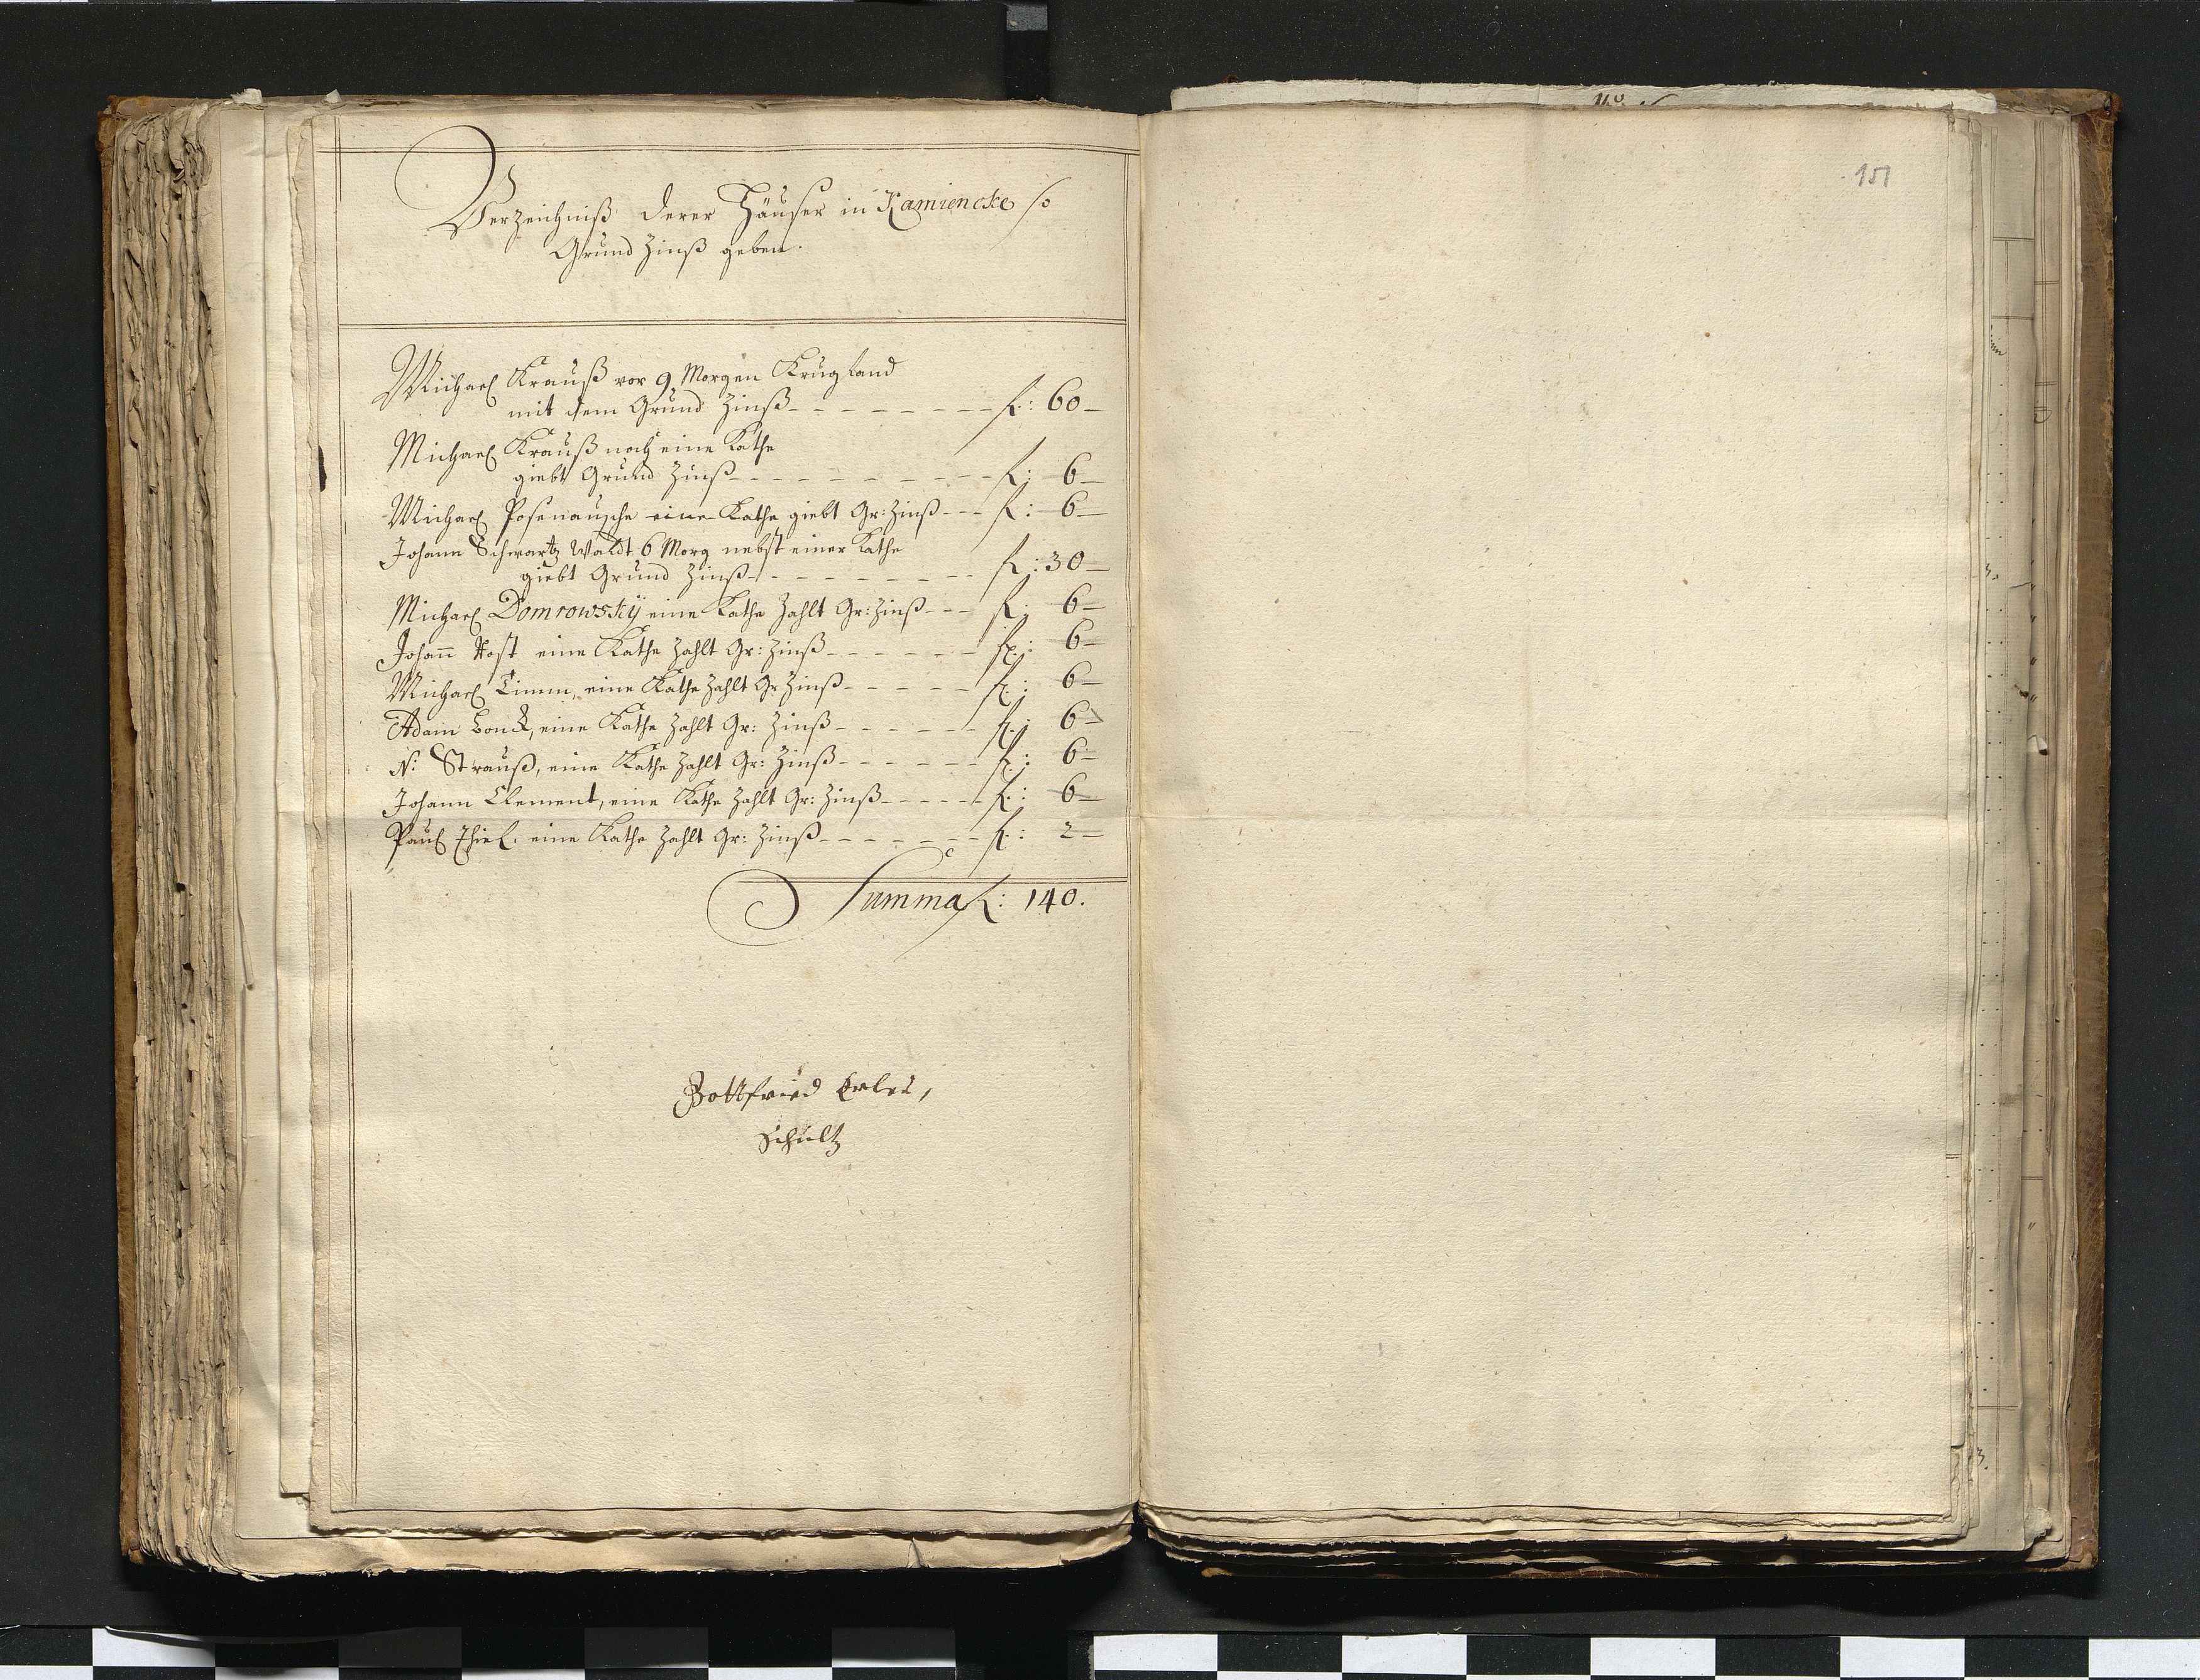 Verzeichniß derer Häuser in Kamiencke so
Grund Zinß geben.
Michael Krauß vor 9 Morgen Krug Land
mit dem Grund Zinß - - - - - - - - f: 60 -
Michael Krauß noch eine Kathe
giebt Grund Zinß - - - - - - - - - - f: 6 -
Michael Posenausche eine Kathe giebt Gr: Zinß - - - f: 6 -
Johann Schwartz Waldt 6 Morg nebst einer Kathe
giebt Grund Zinß - - - - - - - - - f: 30 -
Michael Domrowskÿ eine Kathe Zahlt Gr: Zinß - - - f: 6 -
Johañ Kost eine Kathe Zahlt Gr: Zinß - - - - - - - f: 6 -
Michael Timm, eine Kathe Zahlt Gr Zinß - - - - - - f: 6 -
Adam eine Kathe Zahlt Gr: Zinß - - - - - - f: 6 -
N: Strauß, eine Kathe Zahlt Gr: Zinß - - - - - - f: 6 -
Johann Clement, eine Kathe Zahlt Gr: Zinß - - - - - f: 6 -
Paul Thiel. eine Kathe Zahlt Gr: Zinß - - - - - - - f: 2 -
Summa f: 140.
Gottfried
Schultz
151